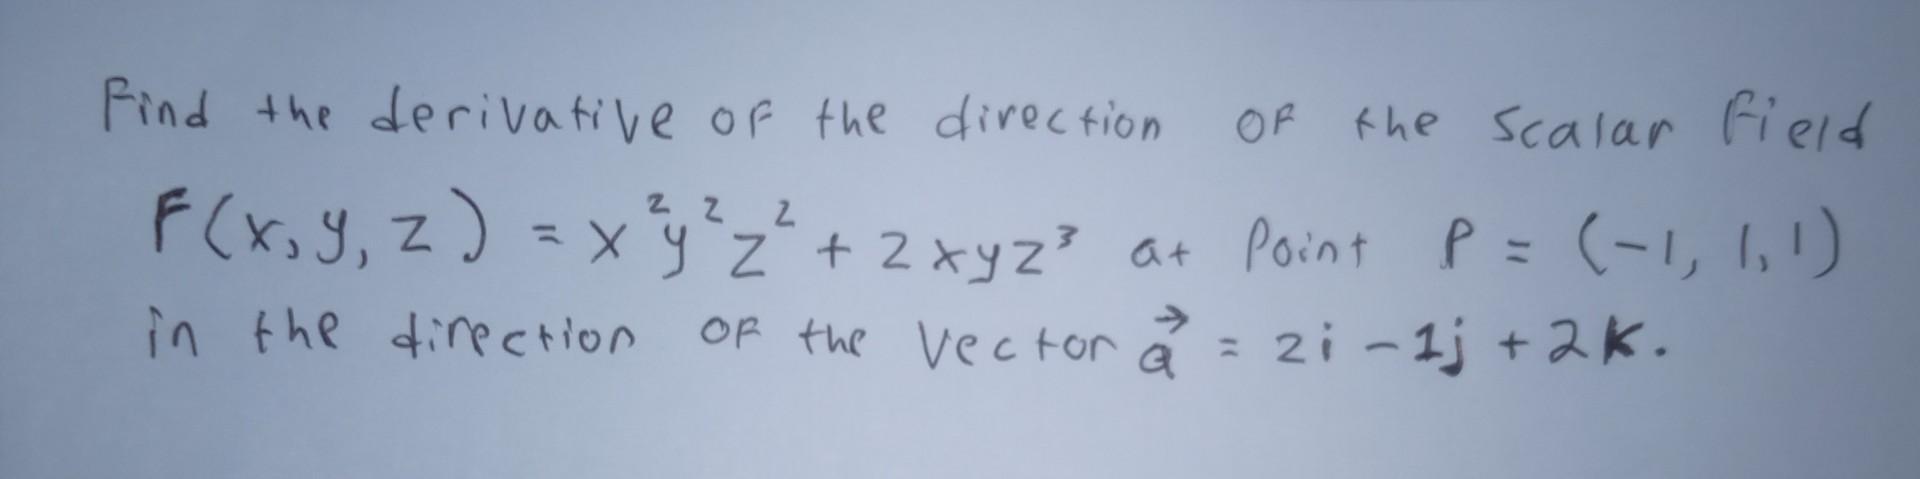 Find the derivative of the direction of the scalar field
F(x,y,z) = x²y²z² + 2xyz³ at Point P = (-1, 1, 1)
in the direction of the vector a⃗ = 2i - 1j + 2k.